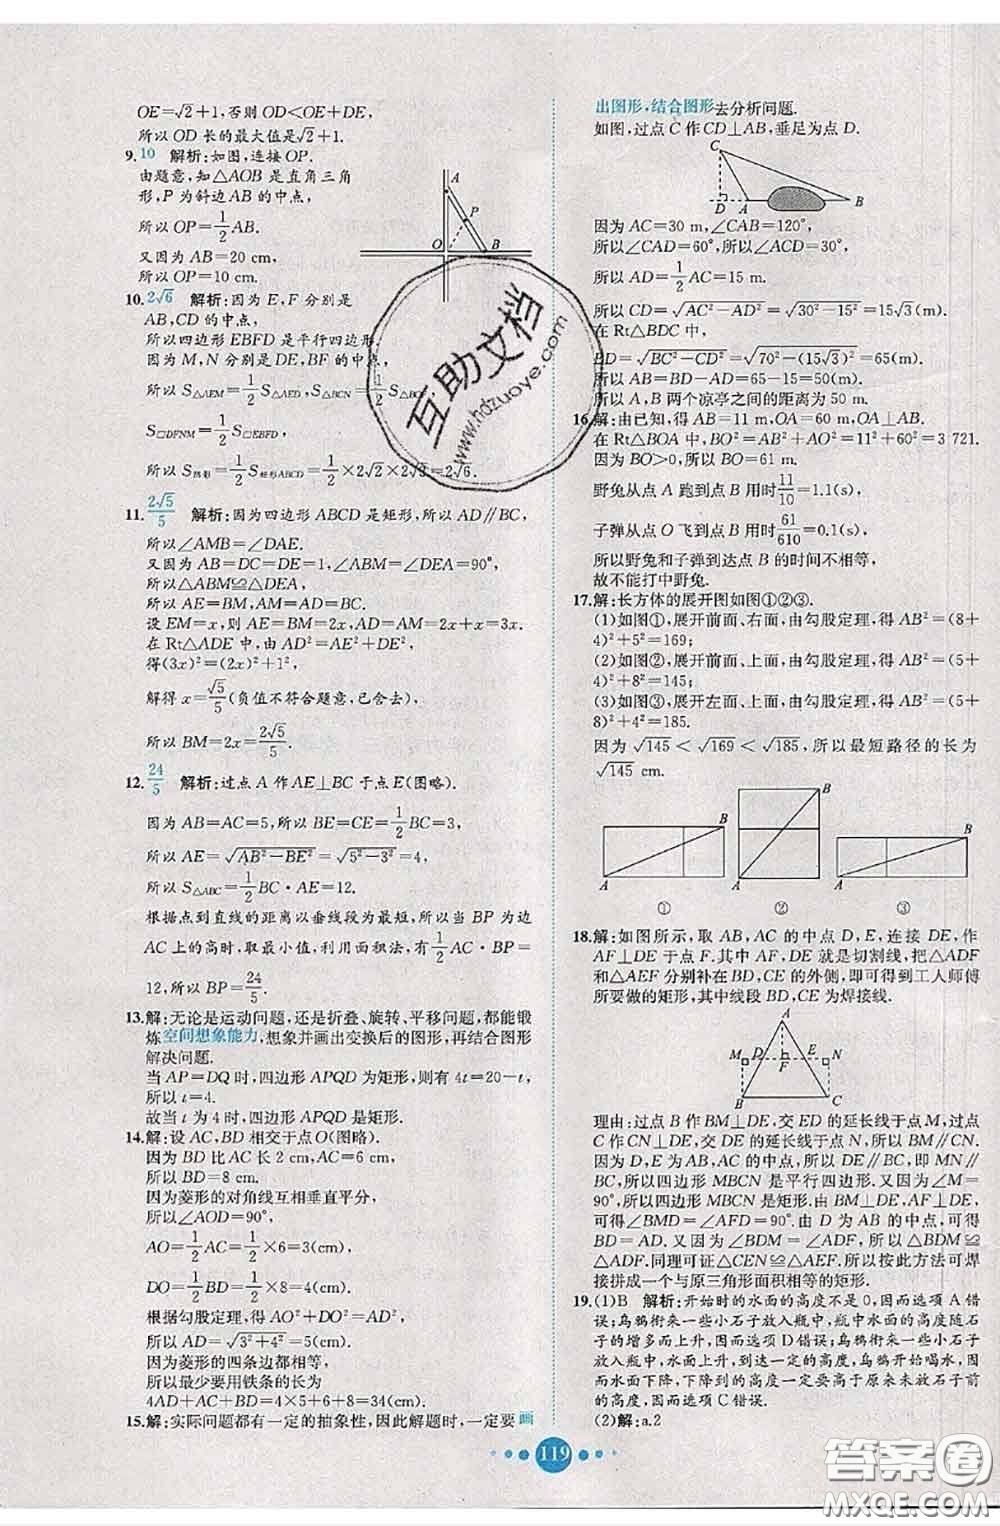 OE=√2+1,否则 OD<OE+DE,
所以 OD 长的最大值是√2+1.
9. 10 解析:如图,连接 OP.
由题意,知△AOB 是直角三角
形,P 为斜边 AB 的中点,
所以 OP=1/2 AB.
又因为 AB=20 cm,
所以 OP=10 cm.
A
P
O
B
10. 2√6 解析:因为 E,F 分别是
AB,CD 的中点,
所以四边形 EBFD 是平行四边形.
因为 M,N 分别是 DE,BF 的中点,
所以 S△AEM=1/2 S△AED,S△BCN=1/2
S□DFNM=1/2 S□EBFD,
所以 S阴影=1/2 S矩形ABCD=1/2×2√2×2√3=2√6.
11. 2√5/5 解析:因为四边形 ABCD 是矩形,所以 AD∥BC,
所以∠AMB=∠DAE.
又因为 AB=DC=DE=1,∠ABM=∠DEA=90°,
所以△ABM≌△DEA,
所以 AE=BM,AM=AD=BC.
设 EM=x,则 AE=BM=2x,AD=AM=2x+x=3x.
在 Rt△ADE 中,由 AD²=AE²+DE²,
得(3x)²=(2x)²+1²,
解得 x=√5/5(负值不符合题意,已舍去),
所以 BM=2x=2√5/5.
12. 24/5 解析:过点 A 作 AE⊥BC 于点 E(图略).
因为 AB=AC=5,所以 BE=CE=1/2 BC=3,
所以 AE=√(AB²−BE²)=√(5²−3²)=4,
所以 S△ABC=1/2 BC·AE=12.
根据点到直线的距离以垂线段为最短,所以当 BP 为边
AC 上的高时,取最小值,利用面积法,有1/2 AC·BP=
12,所以 BP=24/5.
13.解:无论是运动问题,还是折叠、旋转、平移问题,都能锻
炼空间想象能力,想象并画出变换后的图形,再结合图形
解决问题.
当 AP=DQ 时,四边形 APQD 为矩形,则有 4t=20−t,
所以 t=4.
故当 t 为 4 时,四边形 APQD 是矩形.
14.解:设 AC,BD 相交于点 O(图略).
因为 BD 比 AC 长 2 cm,AC=6 cm,
所以 BD=8 cm.
因为菱形的对角线互相垂直平分,
所以∠AOD=90°,
AO=1/2 AC=1/2×6=3(cm),
DO=1/2 BD=1/2×8=4(cm).
根据勾股定理,得 AO²+DO²=AD²,
所以 AD=√(3²+4²)=5(cm).
因为菱形的四条边都相等,
所以最少要用铁条的长为
4AD+AC+BD=4×5+6+8=34(cm).
15.解:实际问题都有一定的抽象性,因此解题时,一定要画
出图形,结合图形去分析问题.
如图,过点 C 作 CD⊥AB,垂足为点 D.
C
D
A
B
因为 AC=30 m,∠CAB=120°,
所以∠CAD=60°,所以∠ACD=30°,
所以 AD=1/2 AC=15 m.
所以 CD=√(AC²−AD²)=√(30²−15²)=15√3(m).
在 Rt△BDC 中,
BD=√(BC²−CD²)=√(70²−(15√3)²)=65(m).
所以 AB=BD−AD=65−15=50(m),
所以 A,B 两个凉亭之间的距离为 50 m.
16.解:由已知,得 AB=11 m,OA=60 m,OA⊥AB.
在 Rt△BOA 中,BO²=AB²+AO²=11²+60²=3 721.
因为 BO>0,所以 BO=61 m.
野兔从点 A 跑到点 B 用时11/10=1.1(s),
子弹从点 O 飞到点 B 用时61/610=0.1(s),
所以野兔和子弹到达点 B 的时间不相等,
故不能打中野兔.
17.解:长方体的展开图如图①②③.
(1)如图①,展开前面、右面,由勾股定理,得 AB²=(8+
4)²+5²=169;
(2)如图②,展开前面、上面,由勾股定理,得 AB²=(5+
4)²+8²=145;
(3)如图③,展开左面、上面,由勾股定理,得 AB²=(5+
8)²+4²=185.
因为 √145<√169<√185,所以最短路径的长为
√145 cm.
B
A
①
B
A
②
B
A
③
18.解:如图所示,取 AB,AC 的中点 D,E,连接 DE,作
AF⊥DE 于点 F.其中 AF,DE 就是切割线,把△ADF
和△AEF 分别补在 BD,CE 的外侧,即可得到工人师傅
所要做的矩形,其中线段 BD,CE 为焊接线.
A
M D E N
F
B C
理由:过点 B 作 BM⊥DE,交 ED 的延长线于点 M,过点
C 作 CN⊥DE,交 DE 的延长线于点 N,所以 BM∥CN.
因为 D,E 为 AB,AC 的中点,所以 DE∥BC,即 MN∥
BC,所以四边形 MBCN 是平行四边形.又因为∠M=
90°,所以四边形 MBCN 是矩形.由 BM⊥DE,AF⊥DE,
可得∠BMD=∠AFD=90°.由 D 为 AB 的中点,可得
BD=AD.又因为∠MDB=∠FDA,所以△BDM≌
△ADF.同理可证△CEN≌△AEF.所以按此方法可焊
接拼成一个与原三角形面积相等的矩形.
19.(1)B 解析:开始时的水面的高度不是 0,因而选项 A 错
误;乌鸦衔来一些小石子放入瓶中,瓶中水面的高度随石
子的增多而上升,因而选项 D 错误;乌鸦衔来一些小石子
放入瓶中,水面上升,达到一定的高度,乌鸦开始喝水,因而
水面下降,下降到的高度一定要高于原来未放石子前
的高度,因而选项 C 错误.
(2)解:a.2
119
互助文档
www.hdzuoye.com
答案圈
MXQE.COM